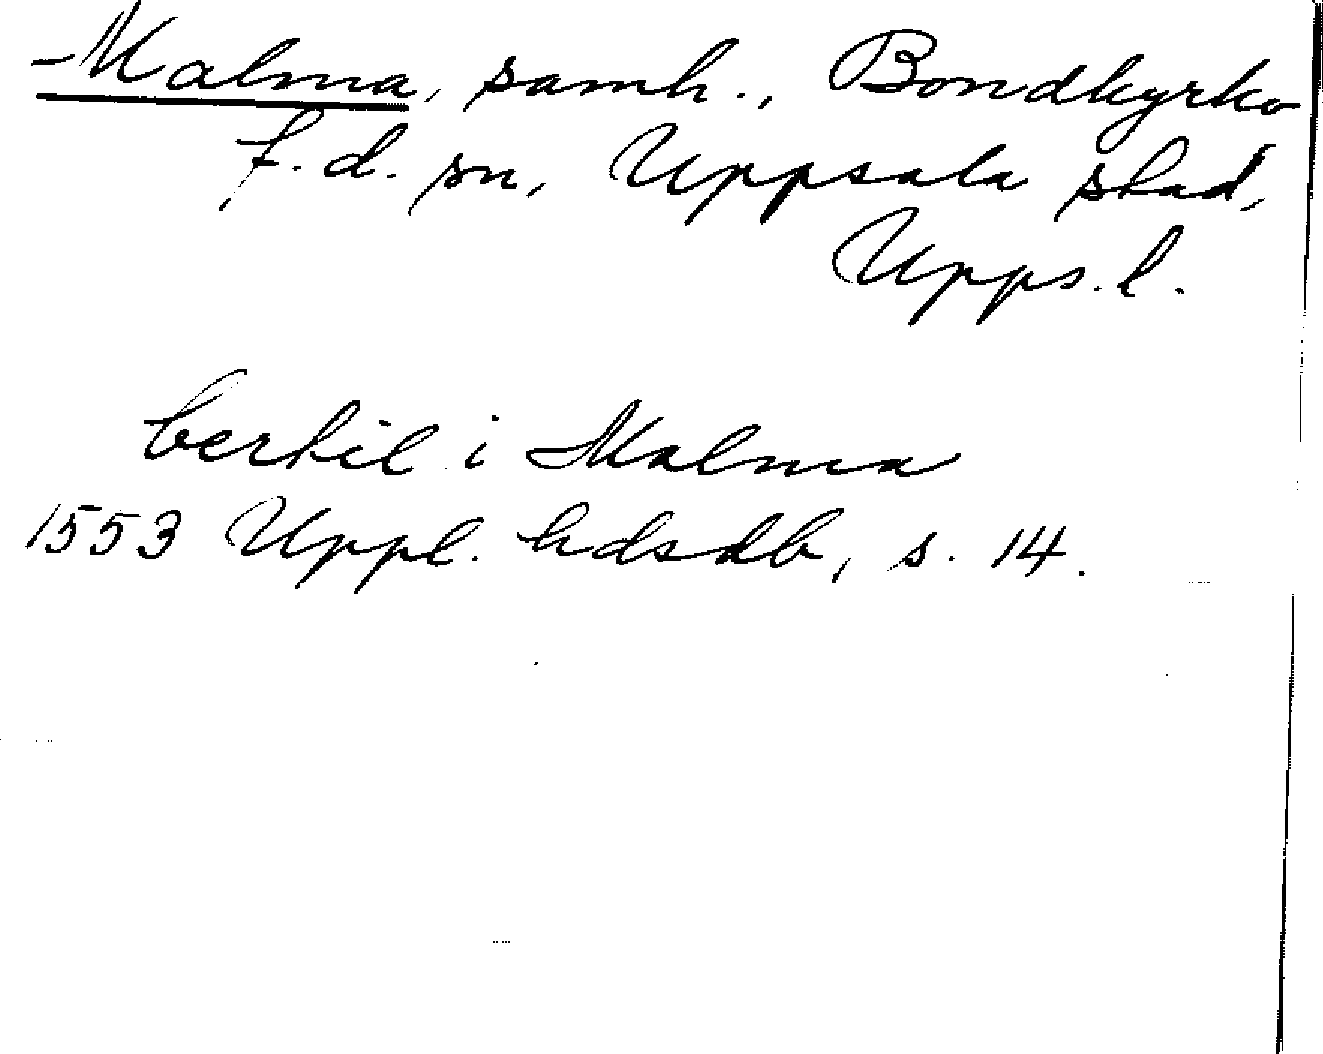 Malma, samh., Bondkyrko
f.d. sn, Uppsala stad,
Upps. l.
bertil i Malma
1553 Uppl. hdskb, s. 14.